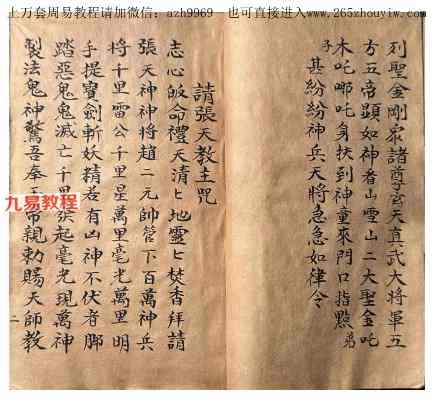 上万套周易教程请加微信：azh9969 也可直接进入www.265zhouyiw.com
列聖金剛眾諸尊玄天真武大將軍五
方五帝顯如神香山雪山二大聖金吒
木吒哪吒身扶到神童來門口指點弟
子甚紛紛神兵天將急急如律令
請張天教主咒
志心皈命禮天清〻地靈〻焚香拜請
張天神神將趙二元帥管下百萬神兵
將千里雷公千里星萬里毫光萬里明
手提寶劍斬妖精若有凶神不伏者腳
踏惡鬼鬼滅亡千里起毫光現萬神
製法鬼神驚吾奉玉帝親勅賜天師教
二
九易教程